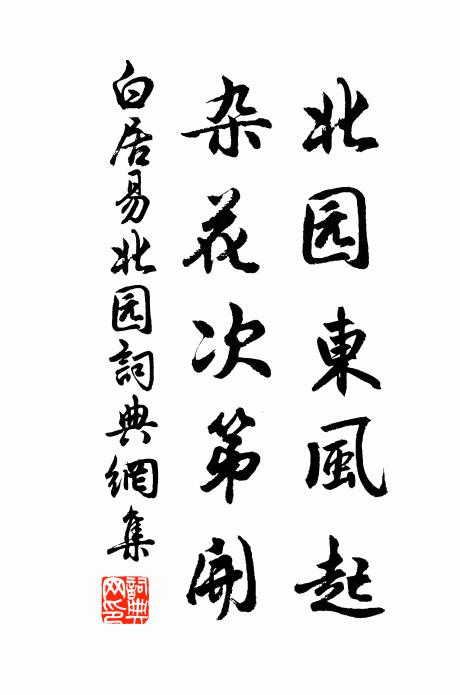 北园東風起
杂花次第開
白居易北园詞典網集
詞典網印